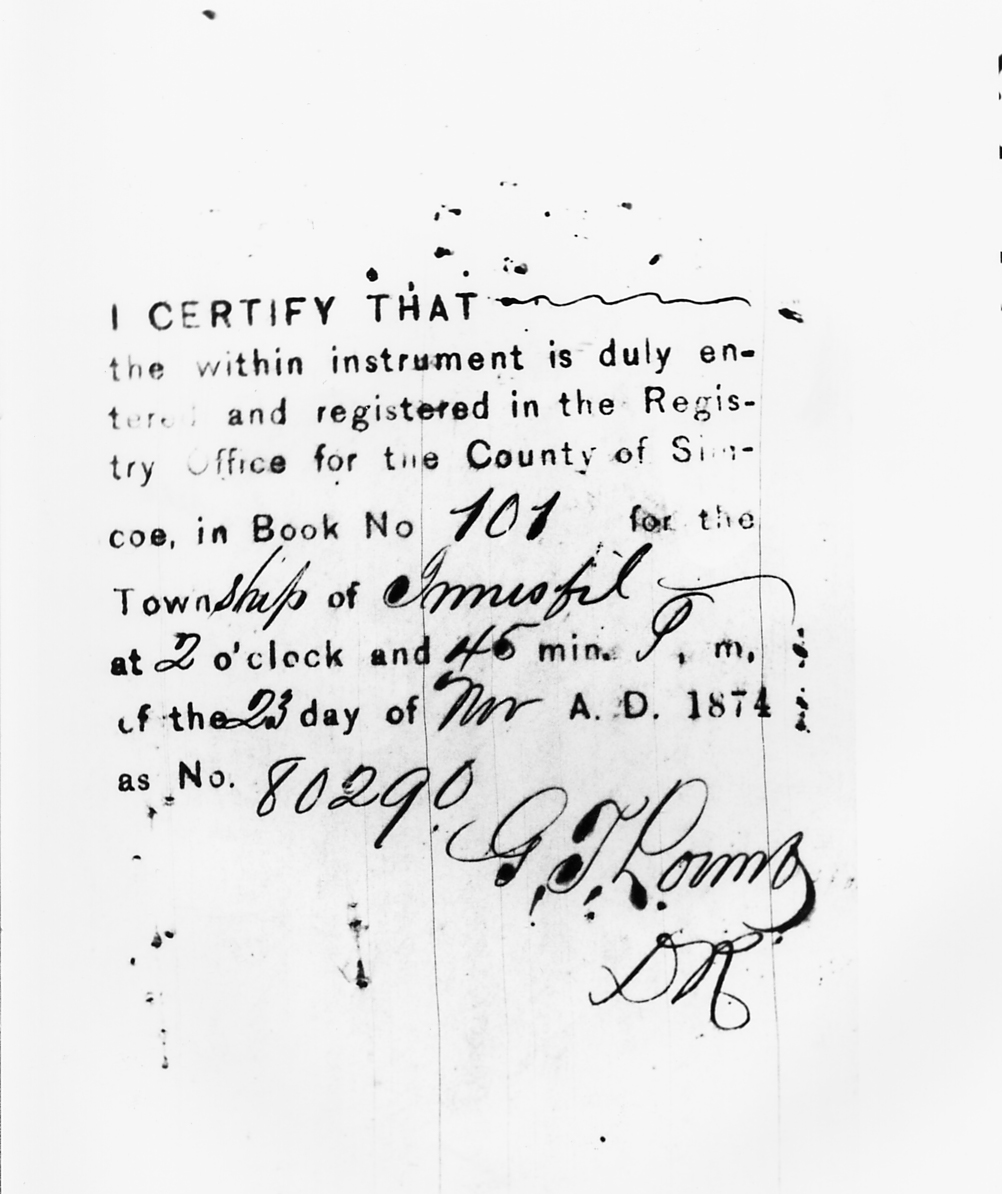 I CERTIFY THAT
the within instrument is duly en-
tered and registered in the Regis-
try Office for the County of Sim-
coe, in Book No 101 for the
Township of Innisfil
at 2 o'clock and 45 min. P. m.
of the 23 day of Nov A. D. 1874
as No. 80290
G. T.
DR